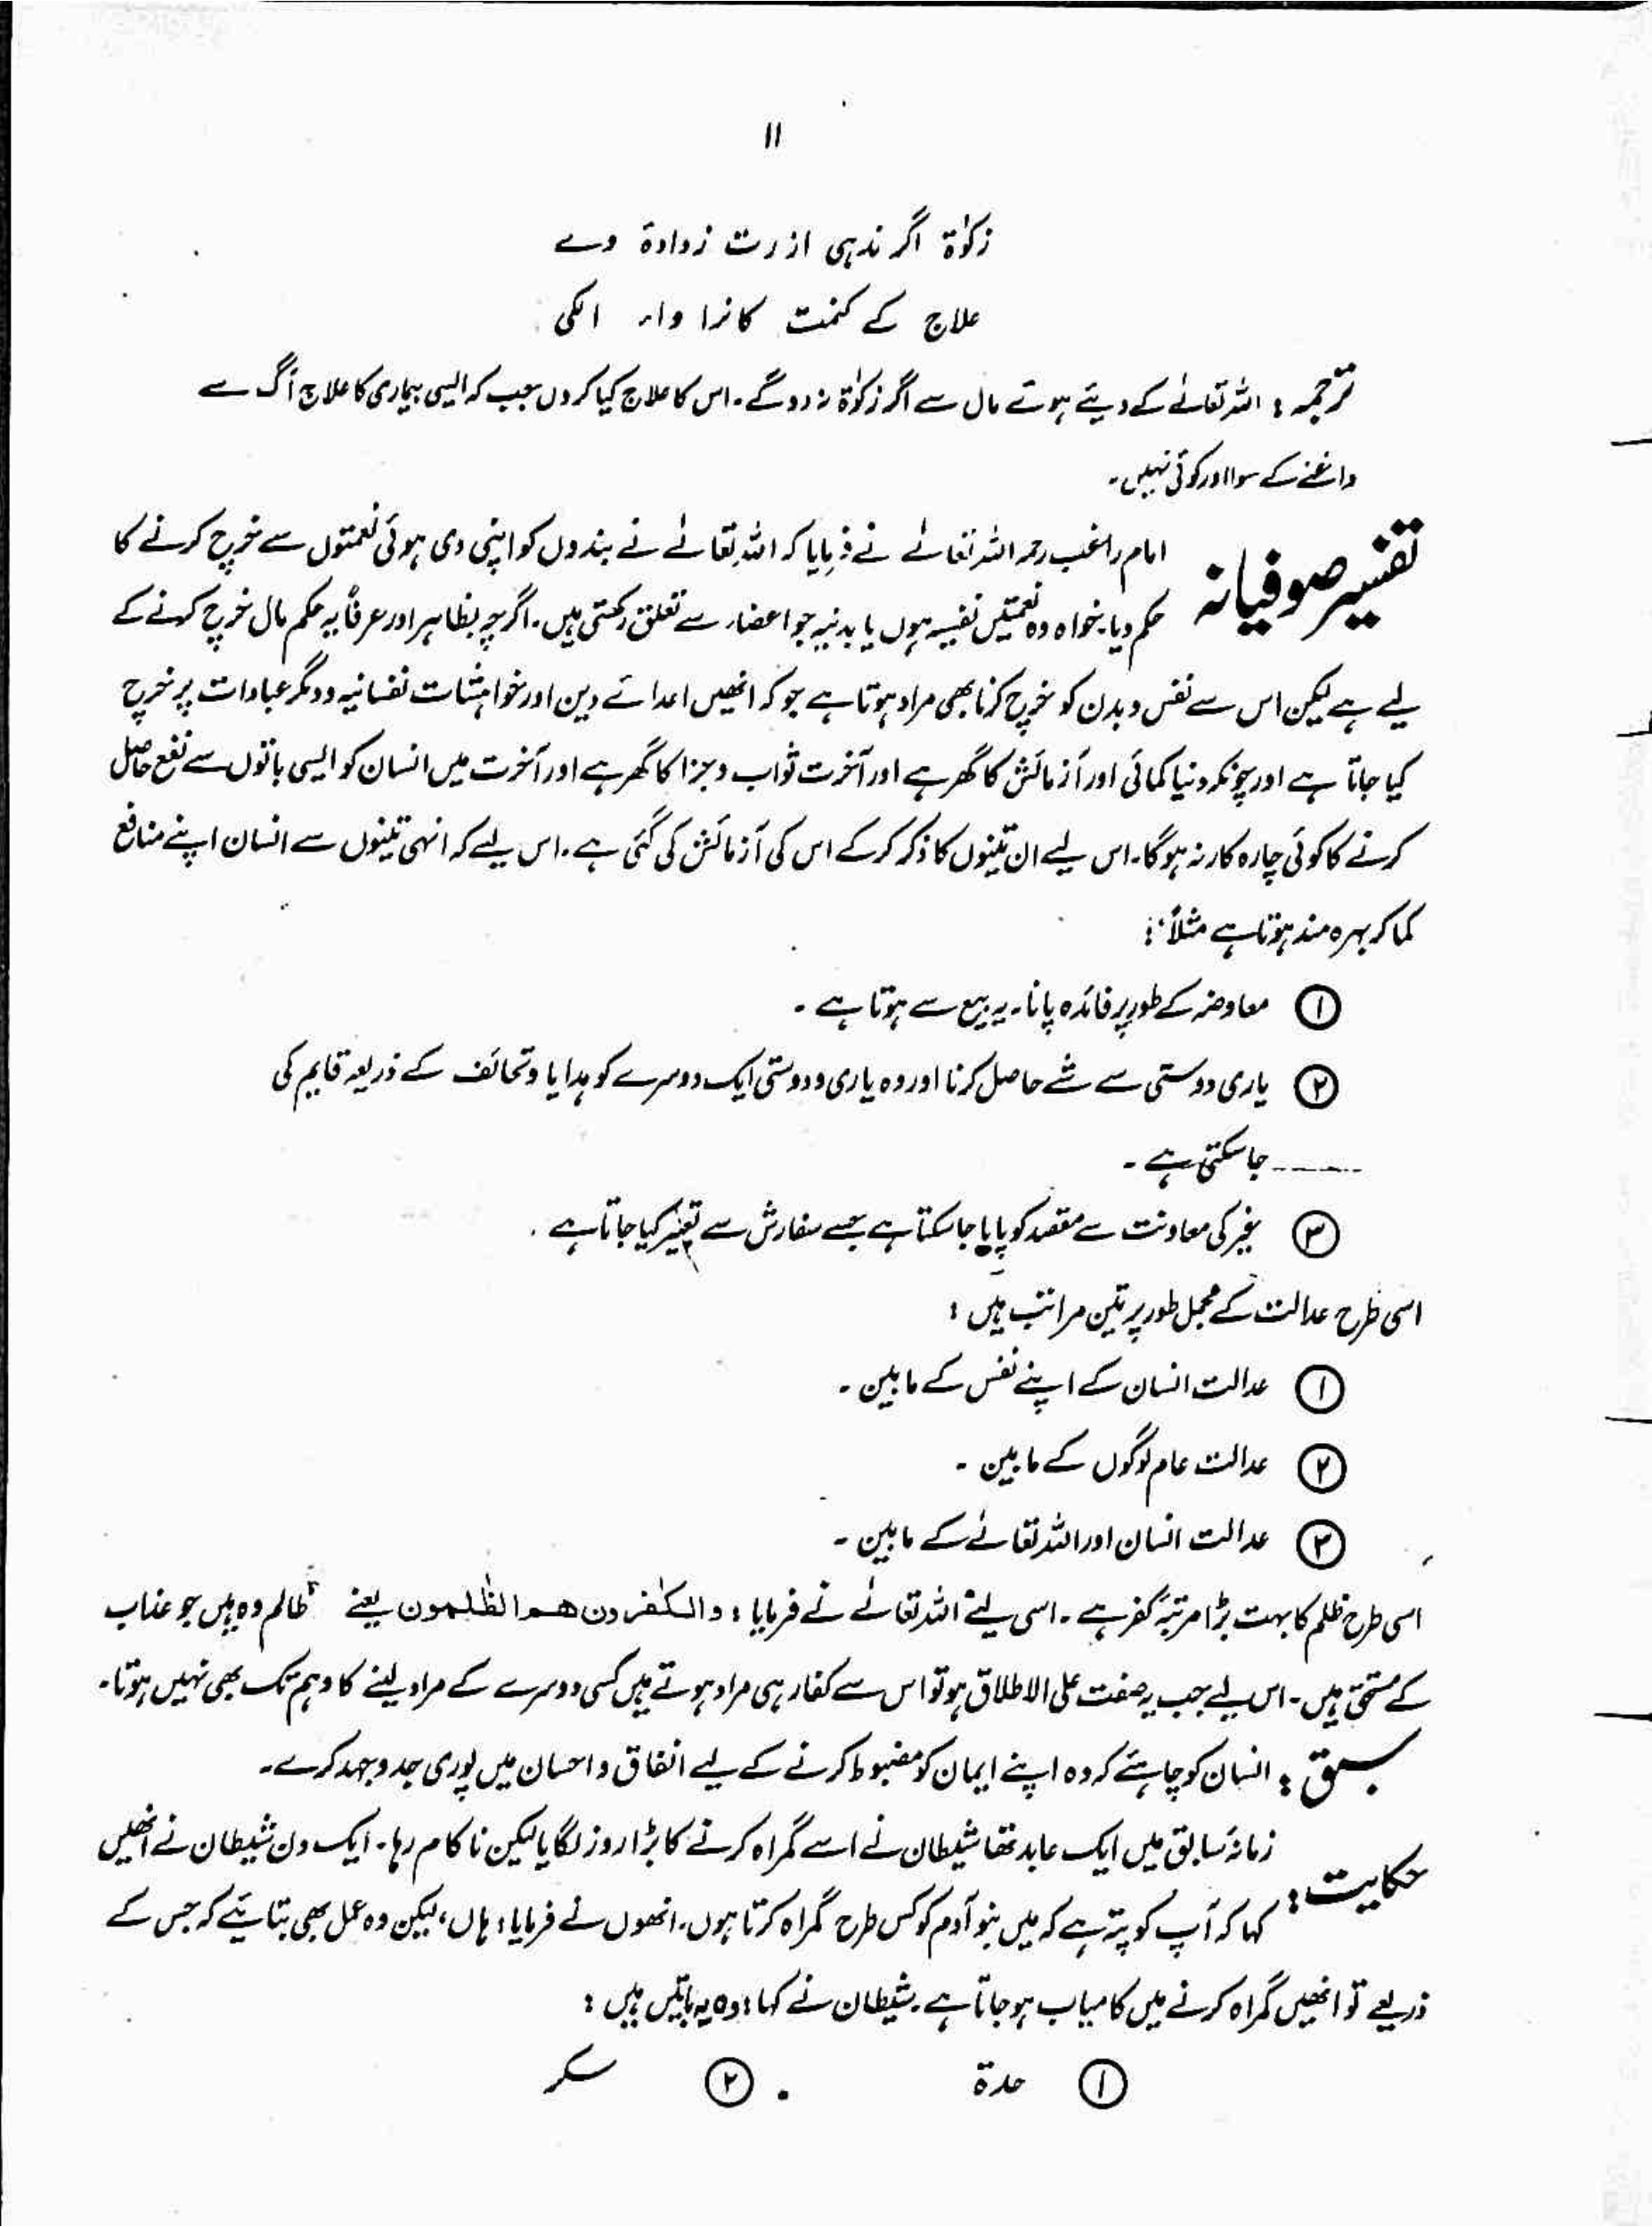 ۱۱
زکوٰۃ اگر ندہی از رت زدادۃ دے
علاج کے کنمت کانرا دار الکی
ترجمہ : اللہ تعالےٰ کے دیئے ہوئے مال سے اگر زکوٰۃ نہ دو گے۔ اس کا علاج کیا کروں جب کہ ایسی بیماری کا علاج آگ سے
داغنے کے سوا اور کوئی نہیں۔
تفسیر صوفیانہ
امام راغب رحمہ اللہ تعالےٰ نے فرمایا کہ اللہ تعالےٰ نے بندوں کو اپنی دی ہوئی نعمتوں سے خرچ کرنے کا
حکم دیا۔ خواہ وہ نعمتیں نفسیہ ہوں یا بدنیہ جو اعضاء سے تعلق رکھتی ہیں۔ اگرچہ بظاہر اور عرفاً یہ حکم مال خرچ کرنے کے
لیے ہے لیکن اس سے نفس و بدن کو خرچ کرنا بھی مراد ہوتا ہے جو کہ انھیں اعدائے دین اور خواہشات نفسانیہ و دیگر عبادات پر خرچ
کیا جاتا ہے اور چونکہ دنیا کمائی اور آزمائش کا گھر ہے اور آخرت ثواب و جزا کا گھر ہے اور آخرت میں انسان کو ایسی باتوں سے نفع حاصل
کرنے کا کوئی چارہ کار نہ ہوگا۔ اس لیے ان تینوں کا ذکر کر کے اس کی آزمائش کی گئی ہے۔ اس لیے کہ انہی تینوں سے انسان اپنے منافع
کما کر بہرہ مند ہوتا ہے مثلاً :
① معاوضہ کے طور پر فائدہ پانا۔ یہ بیع سے ہوتا ہے ۔
② یاری دوستی سے شے حاصل کرنا اور وہ یاری و دوستی ایک دوسرے کو ہدایا و تحائف کے ذریعہ قایم کی
جا سکتی ہے ۔
③ غیر کی معاونت سے مقصد کو پایا جا سکتا ہے جسے سفارش سے تعبیر کیا جاتا ہے ۔
اسی طرح عدالت کے مجمل طور پر تین مراتب ہیں :
① عدالت انسان کے اپنے نفس کے مابین ۔
② عدالت عام لوگوں کے مابین ۔
③ عدالت انسان اور اللہ تعالےٰ کے مابین ۔
اسی طرح ظلم کا بہت بڑا مرتبۂ کفر ہے ۔ اسی لیے اللہ تعالےٰ نے فرمایا : والکٰفرون ھم الظٰلمون یعنے ظالم وہ ہیں جو عذاب
کے مستحق ہیں۔ اس لیے جب یہ صفت علی الاطلاق ہو تو اس سے کفار ہی مراد ہوتے ہیں کسی دوسرے کے مراد لینے کا وہم تک بھی نہیں ہوتا۔
سبق : انسان کو چاہیئے کہ وہ اپنے ایمان کو مضبوط کرنے کے لیے انفاق و احسان میں پوری جدوجہد کرے۔
حکایت :
زمانۂ سابق میں ایک عابد تھا شیطان نے اسے گمراہ کرنے کا بڑا روز لگایا لیکن ناکام رہا۔ ایک دن شیطان نے انھیں
کہا کہ آپ کو پتہ ہے کہ میں بنو آدم کو کس طرح گمراہ کرتا ہوں۔ انھوں نے فرمایا : ہاں، لیکن وہ عمل بھی بتایئے کہ جس کے
ذریعے تو انھیں گمراہ کرنے میں کامیاب ہو جاتا ہے۔ شیطان نے کہا : وہ یہ باتیں ہیں :
① حدۃ ② سکر